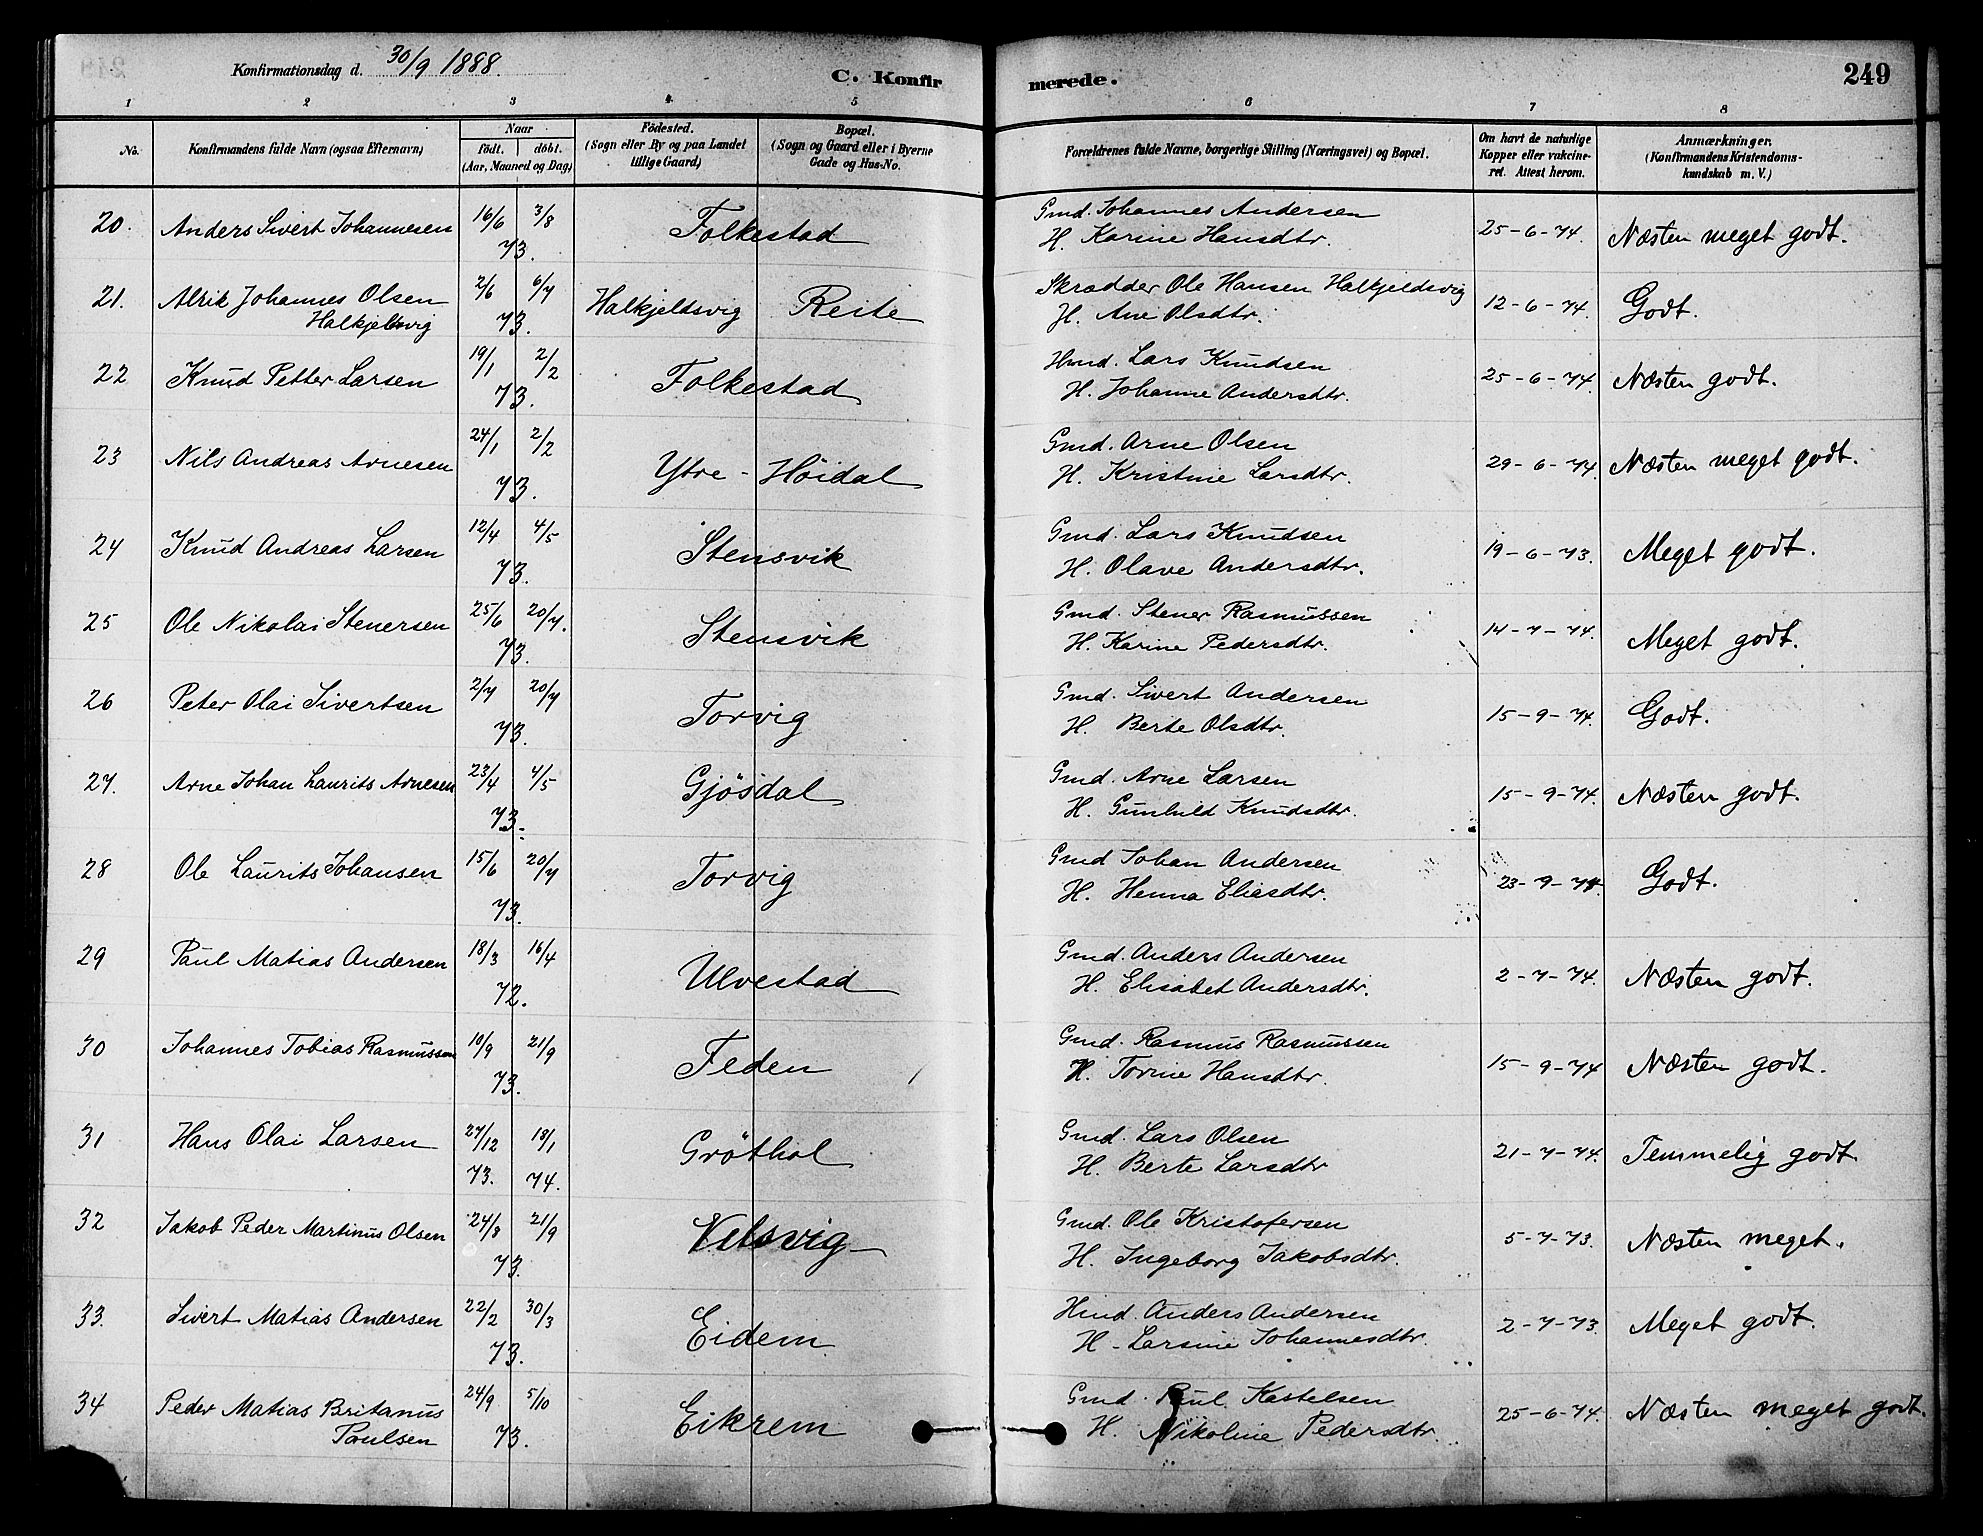 Konfirmationsdag d. 30/9 1888.
C. Konfir
merede.
249
1 2 3 4 5 6 7 8
No.
Konfirmandens fulde Navn (ogsaa Efternavn)
Naar
födt. döbt.
(Aar, Maaned og Dag)
Födested.
(Sogn eller By og paa Landet
tillige Gaard)
Bopæl.
(Sogn og Gaard eller i Byerne
Gade og Hus-No.
Forældrenes fulde Navne, borgerlige Stilling (Næringsvei) og Bopæl.
Om havt de naturlige
Kopper eller vakcine-
ret. Attest herom.
Anmærkninger.
(Konfirmandens Kristendoms-
kundskab m. V.)
20. Anders Sivert Johannesen 16/6 3/8 73. Folkestad
Gmd. Johannes Andersen
H. Karine Hansdtr. 25-6-74. Næsten meget godt.
21. Alrik Johannes Olsen 2/6 6/7 73. Halkjeldsvig Reite
Halkjeldsvig
Skrædder Ole Hansen Halkjeldsvig
H. Ane Olsdtr. 12-6-74. Godt.
22 Knud Petter Larsen 19/1 2/2 73. Folkestad
Hmd. Lars Knudsen
H. Johanne Andersdtr. 25-6-74. Næsten godt.
23 Nils Andreas Arnesen 24/1 2/2 73. Ytre-Höidal
Gmd. Arne Olsen
H. Kristine Larsdtr. 29-6-74. Næsten meget godt.
24 Knud Andreas Larsen 12/4 4/5 73. Stensvik
Gmd. Lars Knudsen
H. Olave Andersdtr. 19-6-73. Meget godt.
25 Ole Nikolai Stenersen 25/6 20/7. 73. Stensvik
Gmd. Stener Rasmussen
H. Karine Pedersdtr. 14-7-74. Meget godt.
26 Peter Olai Sivertsen 2/7 20/7 73. Torvig
Gmd. Sivert Andersen
H. Berte Olsdtr. 15-9-74. Godt.
27. Arne Johan Laurits Arnesen 23/4 4/5 73. Gjösdal
Gmd. Arne Larsen
H. Gunhild Knudsdtr. 15-9-74. Næsten godt.
28 Ole Laurits Johansen 15/6 20/7 73. Torvig
Gmd Johan Andersen
H. Henna Eliasdtr. 23-9-74. Godt.
29 Paul Matias Andersen 18/3 16/4 72. Ulvestad
Gmd. Anders Andersen
H. Elisabet Andersdtr. 2-7-74. Næsten godt.
30 Johannes Tobias Rasmussen 10/9 21/9 73. Feden
Gmd. Rasmus Rasmussen
H. Torine Hansdtr. 15-9-74 Næsten godt.
31 Hans Olai Larsen 27/12 73. 18/1 74. Gröthol
Gmd. Lars Olsen
H. Berte Larsdtr 21-7-74. Temmelig godt.
32 Jakob Peder Martinus Olsen 24/8 21/9 73. Velsvig
Gmd. Ole Kristofersen
H. Ingeborg Jakobsdtr. 5-7-73. Næsten meget.
33. Sivert Matias Andersen 22/2 30/3 73. Eidem
Hmd. Anders Andersen
H. Larsine Johannesdtr. 2-7-73. Meget godt.
34 Peder Matias Britanus 24/9 5/10 73. Eikrem
Paulsen
Gmd. Paul Kastelsen
H. Nikoline Pedersdtr. 25-6-74. Næsten meget godt.